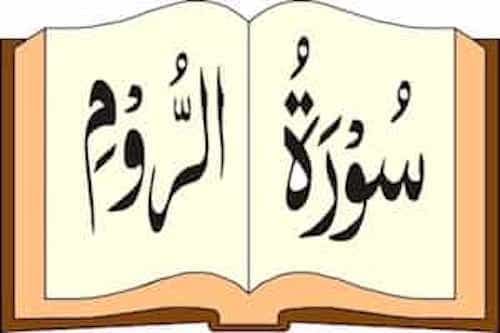 سُوْرَةُ الرُّوْمِ